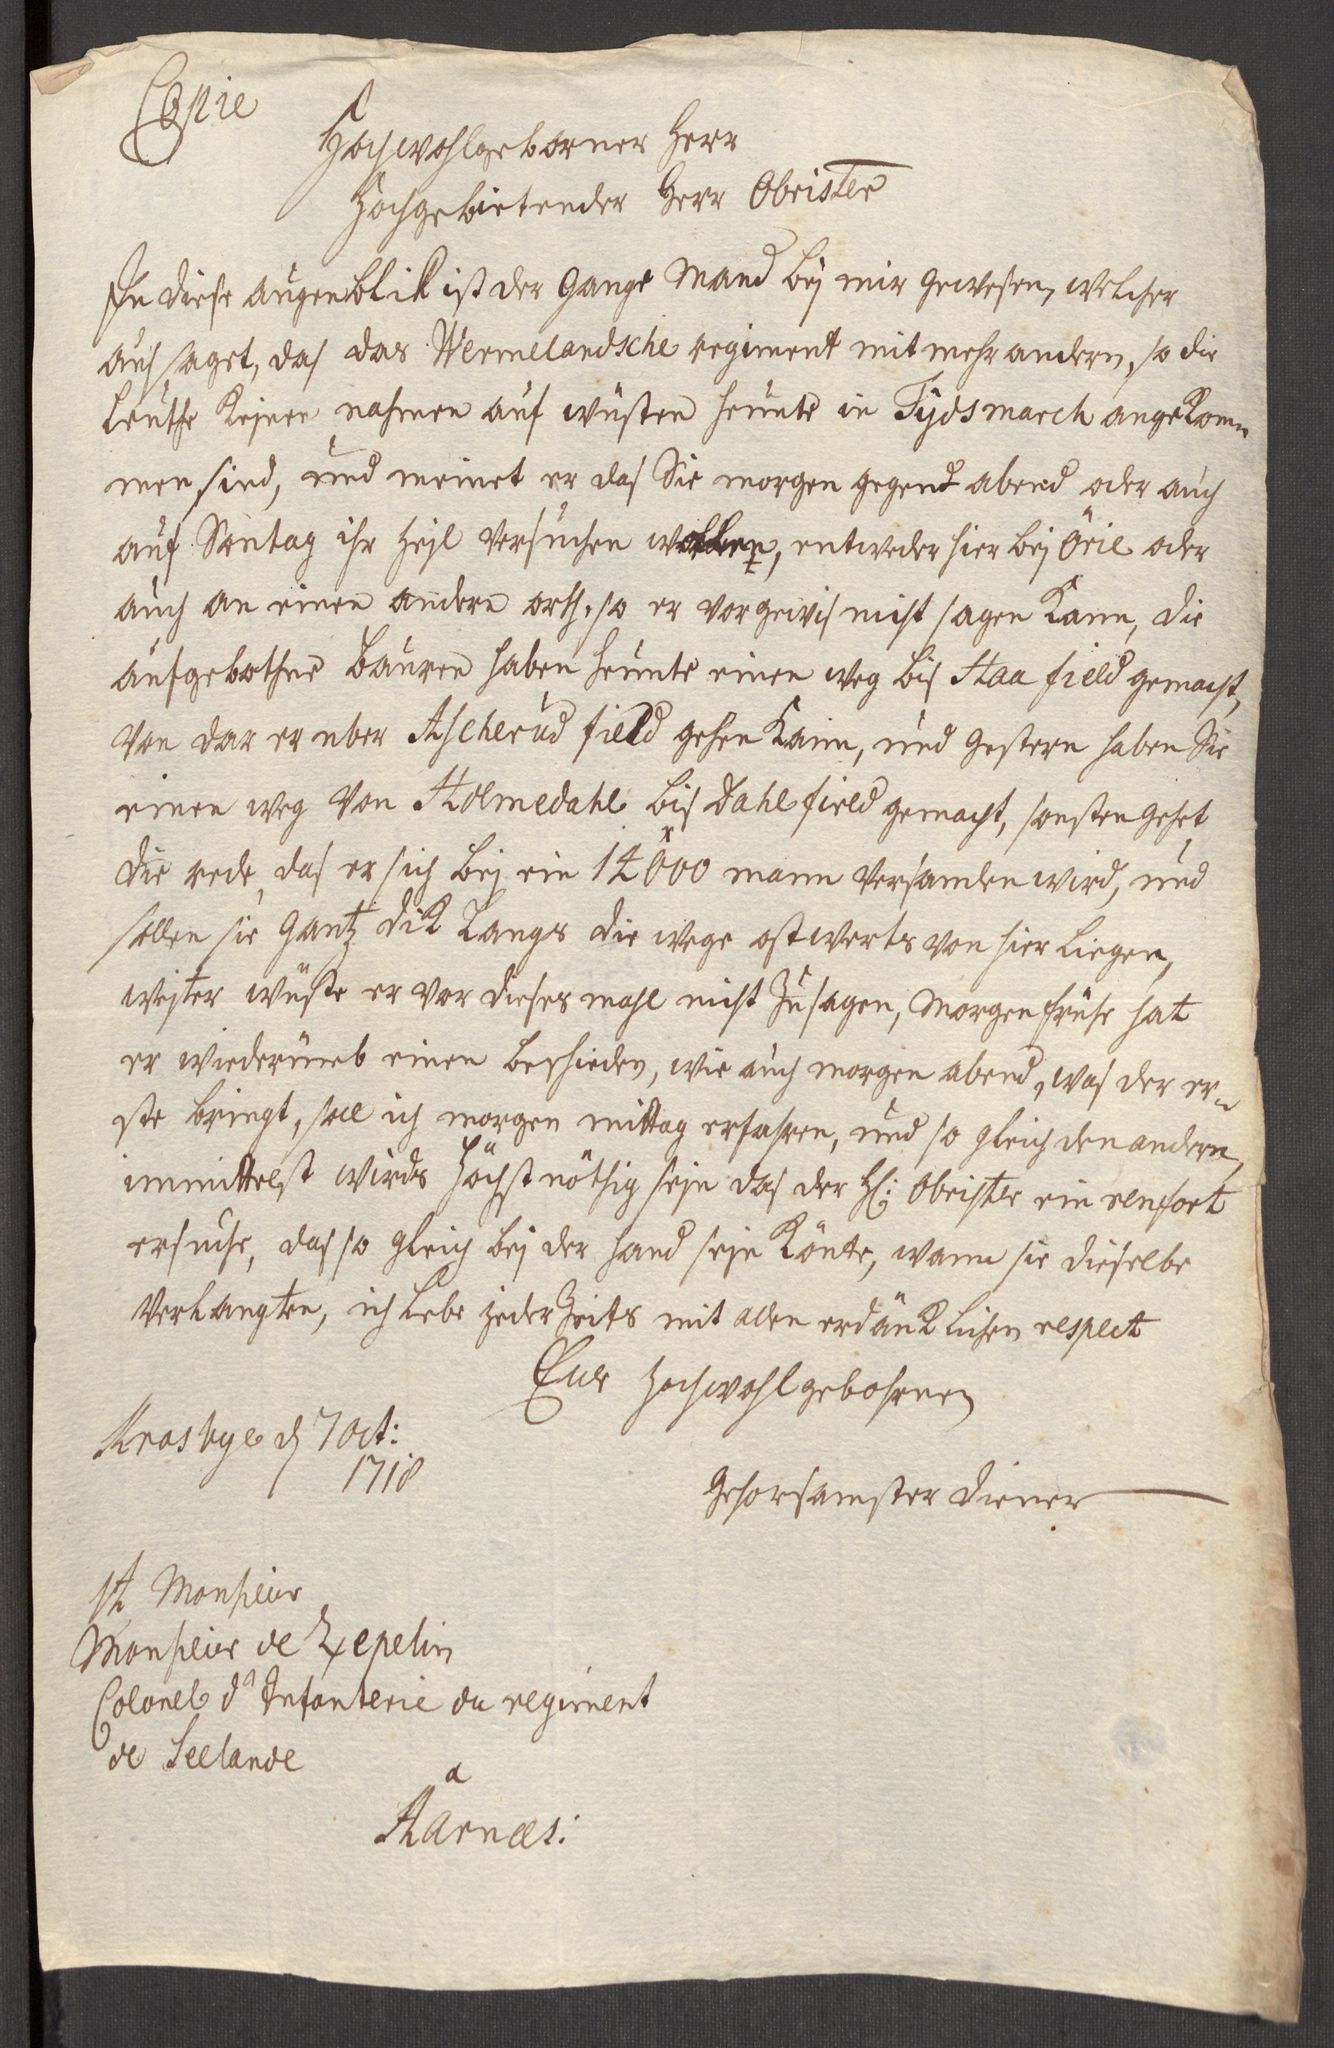 Copie
Hochwohlgeborner Herr
Hochgebietender Herr Obrister
In diese augenblik ist der Gange Mand beÿ mir gewesen, welcher
auß saget, das das Wermelandsche regiment mit mehr andern, so die
leuthe Keinen nahmen auf wüsten heünte in Tÿdsmarch angekom¬
men sind, und meinet er das Sie morgen gegend abend oder auch
auf Sontag ihr Heÿl versuchen wollen, entweder hier beÿ Örie oder
auch an einen andern orth, so er vorgewis nicht sagen Kann, die
aufgebothne Bauren haben heünte einen weg bis Haa field gemacht,
von dar er uber Ascherud field gehen Kann, und gestern haben Sie
einen weg von Holmedahl bis Dahlefield gemacht, sonsten gehet
die rede, das er sich beÿ ein 14000 mann versamlen wird, und
sollen sie gantz dik Langs die wege ostwerts von hier Liegen,
weiter wüste er vor dieses mahl nicht zu sagen, morgen frühe hat
er wiederumb einen beschieden, wie auch morgen abend, was der er¬
ste bringt, soll ich morgen mittag erfahren, und so gleich den andern,
immittelst wirds Höchst nöthig seÿn das der H: Obrister ein renfort
ersuche, das so gleich beÿ der Hand seÿn Könte, wann sie dieselbe
verlangten, ich Lebe Jederzeits mit allen erdänklichen respect
Eur Hochwohlgebohrnen
Krosbye d 7 oct:
1718
Gehorsamster diener
A Monsieur
Monsieur de Zepelin
Colonel d'Infanterie du regiment
de Seelande
a
Aarnæs: